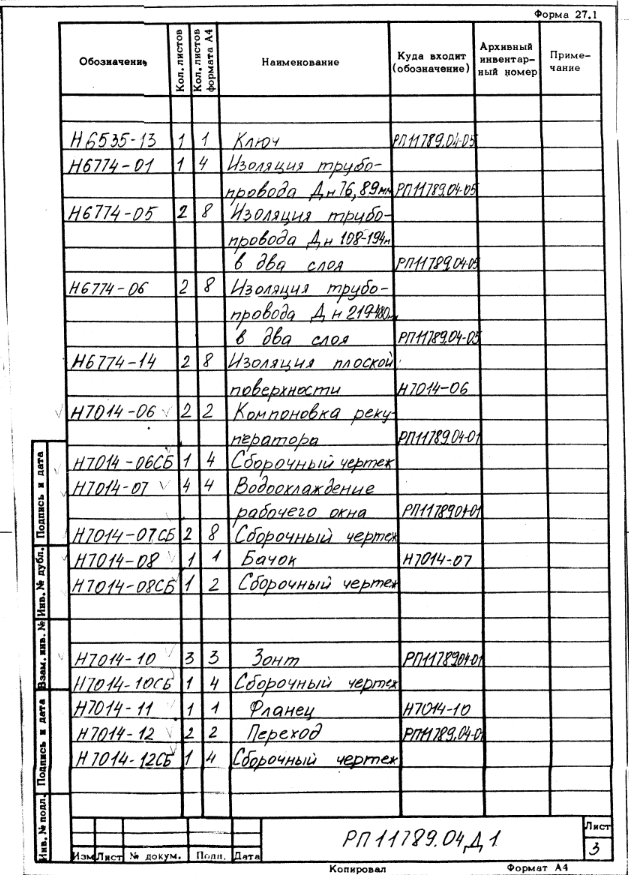 Форма 27.1
Обозначение Кол. листов Кол. листов формата А4 Наименование Куда входит (обозначение) Архивный инвентарный номер Примечание
Н6535-13 1 1 Ключ РП11789.04-05
Н6774-01 1 4 Изоляция трубо-
провода Дн 76, 89мм РП11789.04-05
Н6774-05 2 8 Изоляция трубо-
провода Дн 108-194м
в два слоя РП11789.04-05
Н6774-06 2 8 Изоляция трубо-
провода Дн 219-480
в два слоя РП11789.04-05
Н6774-14 2 8 Изоляция плоской
поверхности Н7014-06
Н7014-06 2 2 Компоновка реку-
ператора РП11789.04-01
Н7014-06СБ 1 4 Сборочный чертеж
Н7014-07 4 4 Водоохлаждение
рабочего окна РП11789.04-01
Н7014-07СБ 2 8 Сборочный чертеж
Н7014-08 1 1 Бачок Н7014-07
Н7014-08СБ 1 2 Сборочный чертеж
Н7014-10 3 3 Зонт РП11789.04-01
Н7014-10СБ 1 4 Сборочный чертеж
Н7014-11 1 1 Фланец Н7014-10
Н7014-12 2 2 Переход РП11789.04-01
Н7014-12СБ 1 4 Сборочный чертеж
Инв. № подл. Подпись и дата Взам. инв. № Инв. № дубл. Подпись и дата
РП11789.04,Д1
Лист
3
Изм Лист № докум. Подп. Дата
Копировал Формат А4